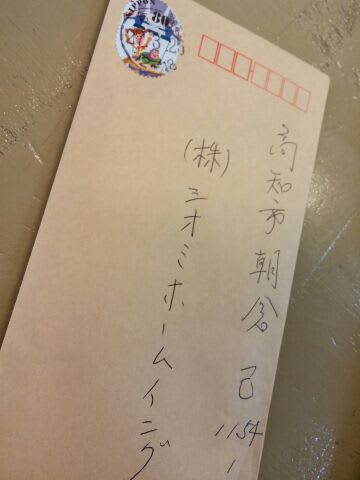 NIPPON 80
高知市朝倉己
1154
1
(株)ミオミホームイング